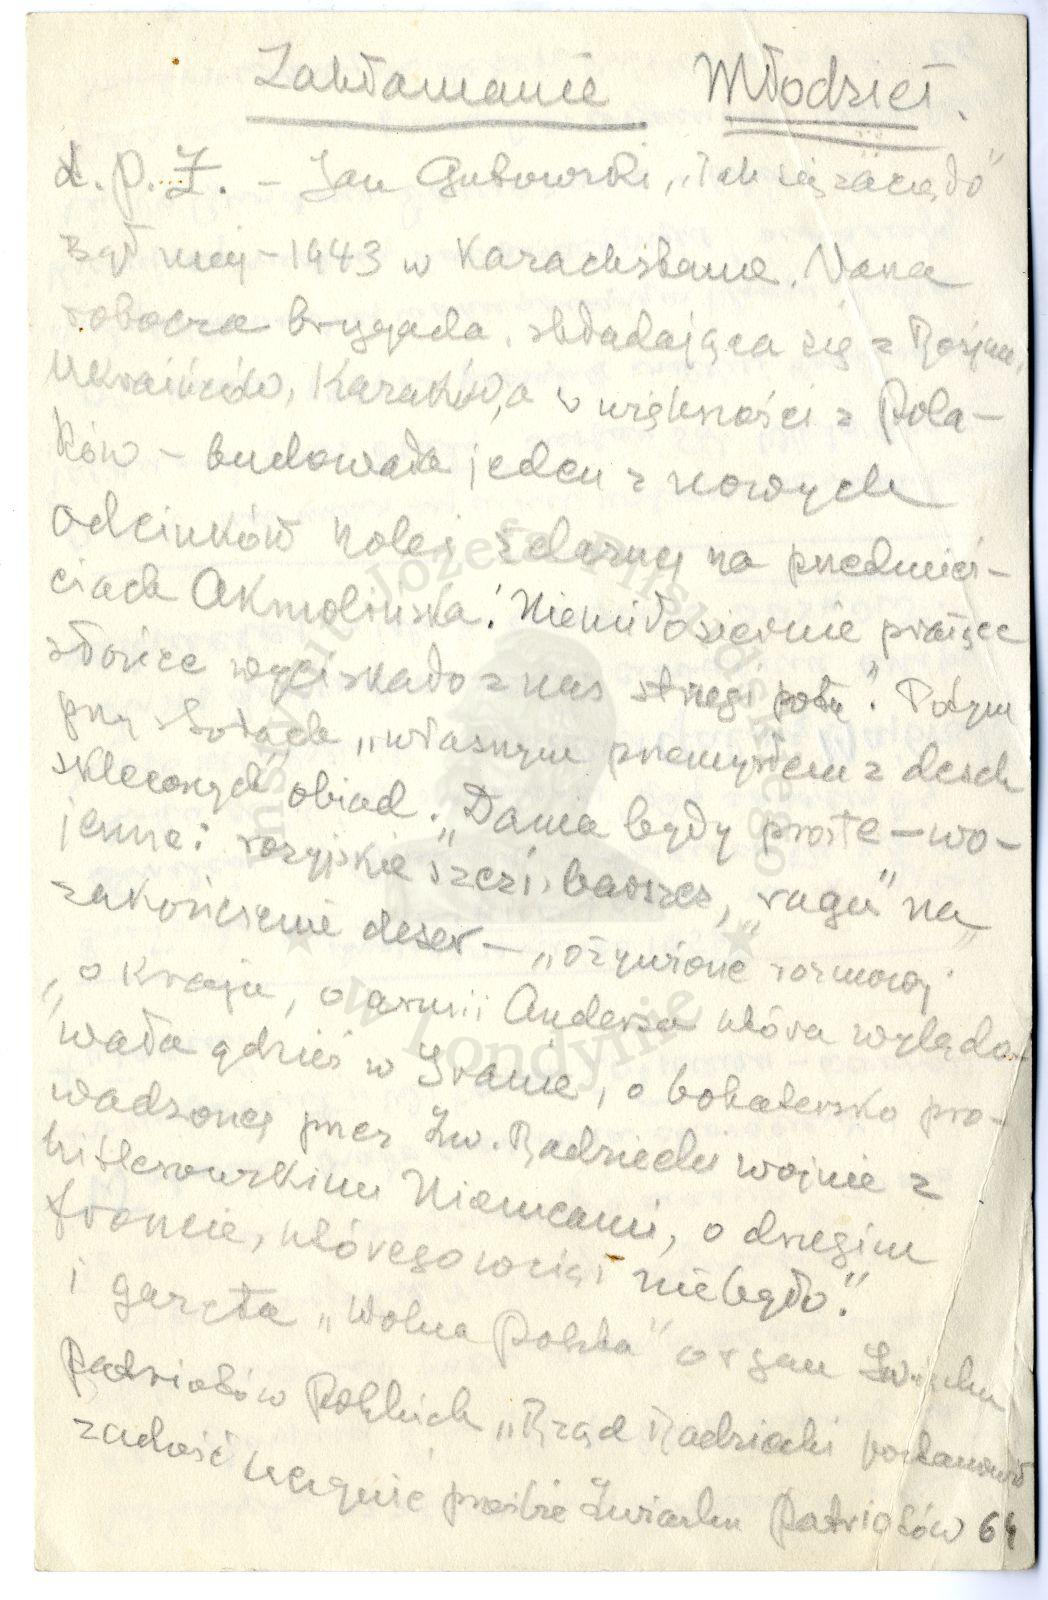 Zakłamanie Młodzieł.
d. p. Ż. – Jan Gutowski, „Tak się zaczęło"
Był maj – 1943 w Kazachstanie. Nasza
robocza brygada, składająca się z Rosjan,
Ukraińców, Kazachów, a w większości z Pola-
ków – budowała jeden z nowych
odcinków kolei żelaznej na przedmieś-
ciach Akmolińska. "Niemiłosiernie prażące
słońce wyciskało z nas strugi potu". Potym
przy stołach „własnym przemysłem z desek
skleconych" obiad. „Dania były proste – wo-
jenne: rosyjskie szczi, barszcz, „ragu" na
zakończenie deser – „ożywione rozmowy
„o kraju, o armii Andersa która wylądo-
wała gdzieś w Iranie, o bohatersko pro-
wadzonej przez Zw. Radziecki wojnie z
hitlerowskimi Niemcami, o drugim
froncie, którego wciąż nie było."
i gazeta „Wolna Polska" organ Związku
Patriotów Polskich „Rząd Radziecki postanowił
zadość uczynić prośbie Związku Patriotów 64
Instytut Józefa Piłsudskiego
w Londynie